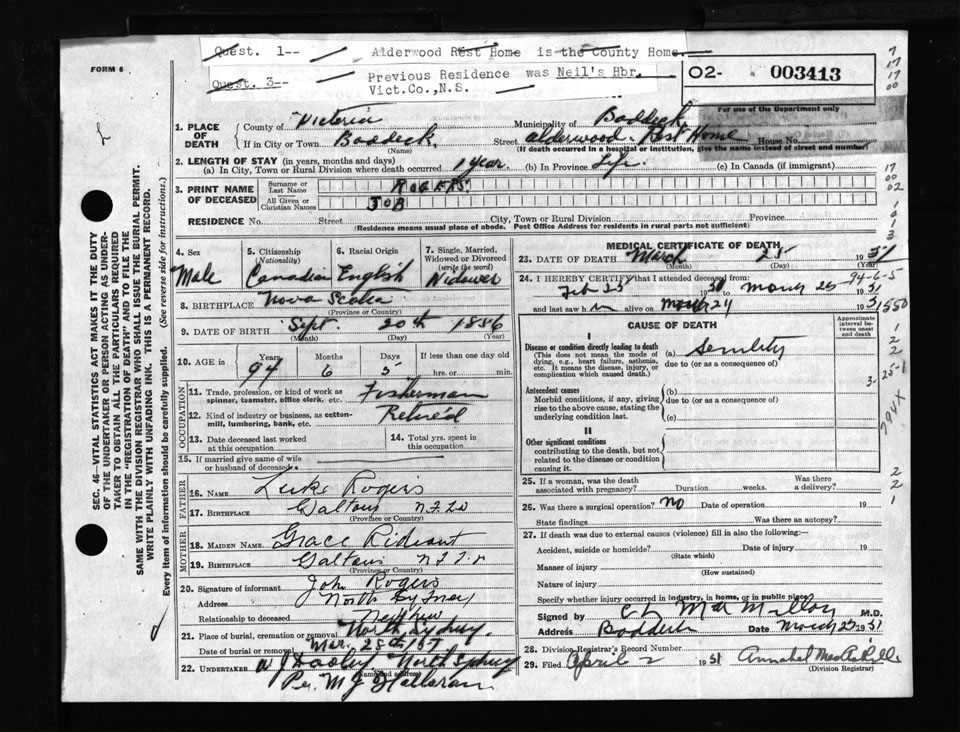 Quest. 1-- Alderwood Rest Home is the County Home.
Quest. 3-- Previous Residence was Neil's Hbr.
Vict.Co.,N.S.
FORM 6
O2- 003413
For use of the Department only
1. PLACE OF DEATH
County of Victoria Municipality of Baddeck
If in City or Town Baddeck Street Alderwood Rest Home House No.
(Name) (If death occurred in a hospital or institution, give the name instead of street and number)
2. LENGTH OF STAY (in years, months and days)
(a) In City, Town or Rural Division where death occurred 1 year (b) In Province Life (c) In Canada (if immigrant)
3. PRINT NAME OF DECEASED
Surname or Last Name ROGERS
All Given or Christian Names JOB
RESIDENCE No. Street City, Town or Rural Division Province
(Residence means usual place of abode. Post Office Address for residents in rural parts not sufficient)
4. Sex Male
5. Citizenship (Nationality) Canadian
6. Racial Origin English
7. Single, Married, Widowed or Divorced (write the word) Widower
8. BIRTHPLACE Nova Scotia
(Province or Country)
9. DATE OF BIRTH Sept. 20th 1856
(Month) (Day) (Year)
10. AGE in Years Months Days If less than one day old
94 6 5 hrs. or min.
OCCUPATION
11. Trade, profession, or kind of work as spinner, teamster, office clerk, etc. Fisherman
12. Kind of industry or business, as cotton-mill, lumbering, bank, etc. Retere'd
13. Date deceased last worked at this occupation
14. Total yrs. spent in this occupation
15. If married give name of wife or husband of deceased
FATHER
16. NAME Luke Rogers
17. BIRTHPLACE Galtous NFLD
(Province or Country)
MOTHER
18. MAIDEN NAME Grace Rideout
19. BIRTHPLACE Galtous
(Province or Country)
20. Signature of informant John Rogers
Address North Sydney
Relationship to deceased Nephew
21. Place of burial, cremation or removal North Sydney.
Date of burial or removal Mar. 28th
22. UNDERTAKER W J Dooley North Sydney
(Name and address)
Per. M J Halloran
MEDICAL CERTIFICATE OF DEATH
23. DATE OF DEATH March 25 1951
(Month) (Day) (Year)
24. I HEREBY CERTIFY that I attended deceased from
Feb 25 1950 to March 25 1951
and last saw h im alive on March 24 1951
CAUSE OF DEATH
Approximate interval between onset and death
I
Disease or condition directly leading to death
(This does not mean the mode of dying, e.g., heart failure, asthenia, etc. It means the disease, injury, or complication which caused death.)
(a) Senility
due to (or as a consequence of)
Antecedent causes
Morbid conditions, if any, giving rise to the above cause, stating the underlying condition last.
(b)
due to (or as a consequence of)
(c)
II
Other significant conditions
contributing to the death, but not related to the disease or condition causing it.
25. If a woman, was the death associated with pregnancy? Duration weeks. Was there a delivery?
26. Was there a surgical operation? no Date of operation 19
State findings Was there an autopsy?
27. If death was due to external causes (violence) fill in also the following:
Accident, suicide or homicide? Date of injury 19
(State which)
Manner of injury
(How sustained)
Nature of injury
Specify whether injury occurred in industry, in home, or in public place
Signed by C L MacMillan M.D.
Address Baddeck Date March 25 1951
28. Division Registrar's Record Number
29. Filed April 2 1951
(Division Registrar)
SEC. 46—VITAL STATISTICS ACT MAKES IT THE DUTY
OF THE UNDERTAKER OR PERSON ACTING AS UNDER-
TAKER TO OBTAIN ALL THE PARTICULARS REQUIRED
IN THE "REGISTRATION OF DEATH" AND TO FILE THE
SAME WITH THE DIVISION REGISTRAR WHO SHALL ISSUE THE BURIAL PERMIT.
WRITE PLAINLY WITH UNFADING INK. THIS IS A PERMANENT RECORD.
Every item of information should be carefully supplied. (See reverse side for instructions.)
94-6-5
550
794X